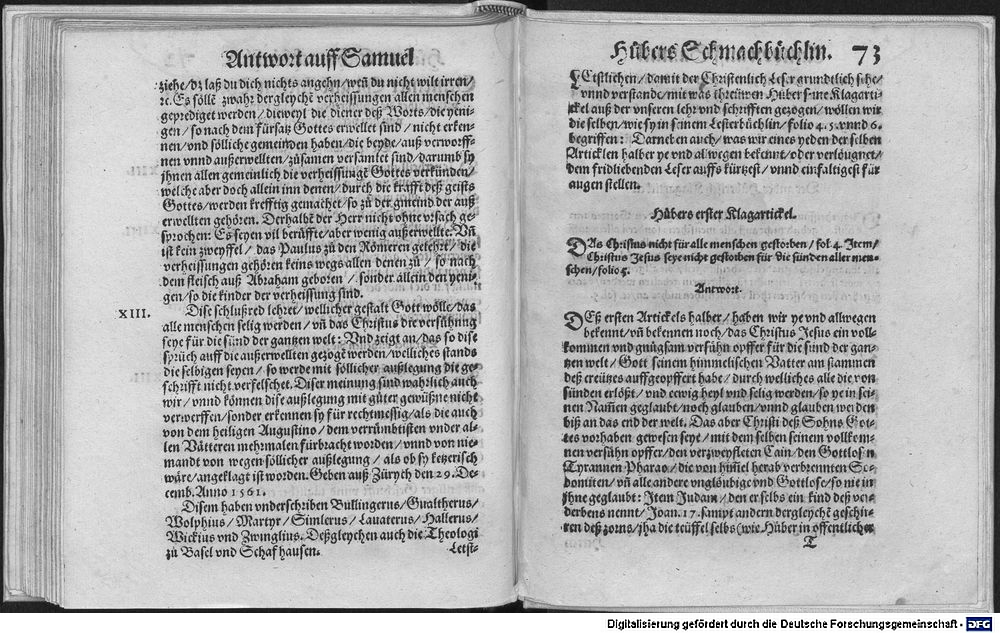 Antwort auff Samuel
ziehe/dz laß du dich nichts angehn/weñ du nicht wilt irren/
ꝛc. Es söllẽ zwahr dergleychẽ verheissungen allen menschen
geprediget werden/dieweyl die diener deß Worts/die yeni-
gen/so nach dem fürsatz Gottes erwellet sind/nicht erken-
nen/vnd sölliche gemeinden haben/die beyde/auß verworff-
nen vnnd außerwellten/zůsamen versamlet sind/darumb sy
jhnen allen gemeinlich die verheissungẽ Gottes verkünden/
welche aber doch allein inn denen/durch die krafft deß geists
Gottes/werden krefftig gemachet/so zů der gmeind der auß
erwellten gehören. Derhalbẽ der Herr nicht ohne vrsach ge-
sprochen: Es seyen vil berüfft/aber wenig außerwellte. Vñ
ist kein zweyffel/das Paulus zů den Römeren gelehrt/die
verheissungen gehören keins wegs allen denen zů/so nach
dem fleisch auß Abraham geboren/sonder allein den yeni-
gen/so die kinder der verheissung sind.
XIII. Dise schlußred lehret/wellicher gestalt Gott wölle/das
alle menschen selig werden/vñ das Christus die versühnung
seye für die sünd der gantzen welt: Vnd zeigt an/das so dise
sprüch auff die außerwellten gezogẽ werden/welliches stands
die selbigen seyen/so werde mit söllicher außlegung die ge-
schrifft nicht verfelschet. Diser meinung sind wahrlich auch
wir/vnnd können dise außlegung mit gůter gewüßne nicht
verwerffen/sonder erkennen sy für rechtmessig/als die auch
von dem heiligen Augustino/dem verrůmbtisten vnder al-
len Vätteren mehrmalen fürbracht worden/vnnd von nie-
mandt von wegen söllicher außlegung/als ob sy ketzerisch
wäre/angeklagt ist worden. Geben auß Zürych den 29. De-
cemb. Anno 1561.
Disem haben vnderschriben Bullingerus/Gualtherus/
Wolphius/Martyr/Simlerus/Lauaterus/Hallerus/
Wickius vnd Zwinglius. Deßgleychen auch die Theologi
zů Basel vnd Schafhausen.
Letst-
Hůbers Schmachbüchlin. 73
LEtstlichen/damit der Christenlich Leser grundtlich sehe/
vnnd verstande/mit was threüwen Hůber seine Klagarti-
ckel auß der vnseren lehr vnd schrifften gezogen/wöllen wir
die selben/wie sy in seinem Lesterbüchlin/folio 4.5.vnnd 6.
begriffen: Darneben auch/was wir eines yeden der selben
Articklen halber ye vnd alwegen bekennt/oder verlöugnet/
dem fridliebenden Leser auffs kürtzest/vnnd einfaltigest für
augen stellen.
Hůbers erster Klagartickel.
DAs Christus nicht für alle menschen gestorben/fol. 4. Item/
Christus Jesus seye nicht gestorben für die sünden aller men-
schen/folio 5.
Antwort.
DEß ersten Artickels halber/haben wir ye vnd allwegen
bekennt/vñ bekennen noch/das Christus Jesus ein voll-
kommen vnd gnůgsam versühn opffer für die sünd der gan-
tzen welt/Gott seinem himmelischen Vatter am stammen
deß creützes auffgeopffert habe/durch welliches alle die von
sünden erlößt/vnd ewig heyl vnd selig werden/so ye in sei-
nen Nam̃en geglaubt/noch glauben/vnnd glauben werden
biß an das end der welt. Das aber Christi deß Sohns Got-
tes vorhaben gewesen seye/mit dem selben seinem vollkom-
nen versühn opffer/den verzweyfleten Cain/den Gottlosen
Tyrannen Pharao/die von him̃el herab verbrennten So-
domiten/vñ alle andere vnglöubige vnd Gottlose/so nie in
jhne geglaubt: Item Judam/den er selbs ein kind deß ver-
derbens nennt/Joan. 17. sampt andern dergleychẽ geschir-
ren deß zorns/jha die teüffel selbs (wie Hůber in offentlicher
T
Digitalisierung gefördert durch die Deutsche Forschungsgemeinschaft - DFG